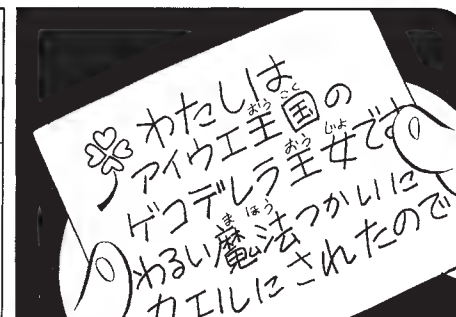 わたしは
アイウエ王国の
ゲコデレラ王女です
わるい魔法つかいに
カエルにされたので